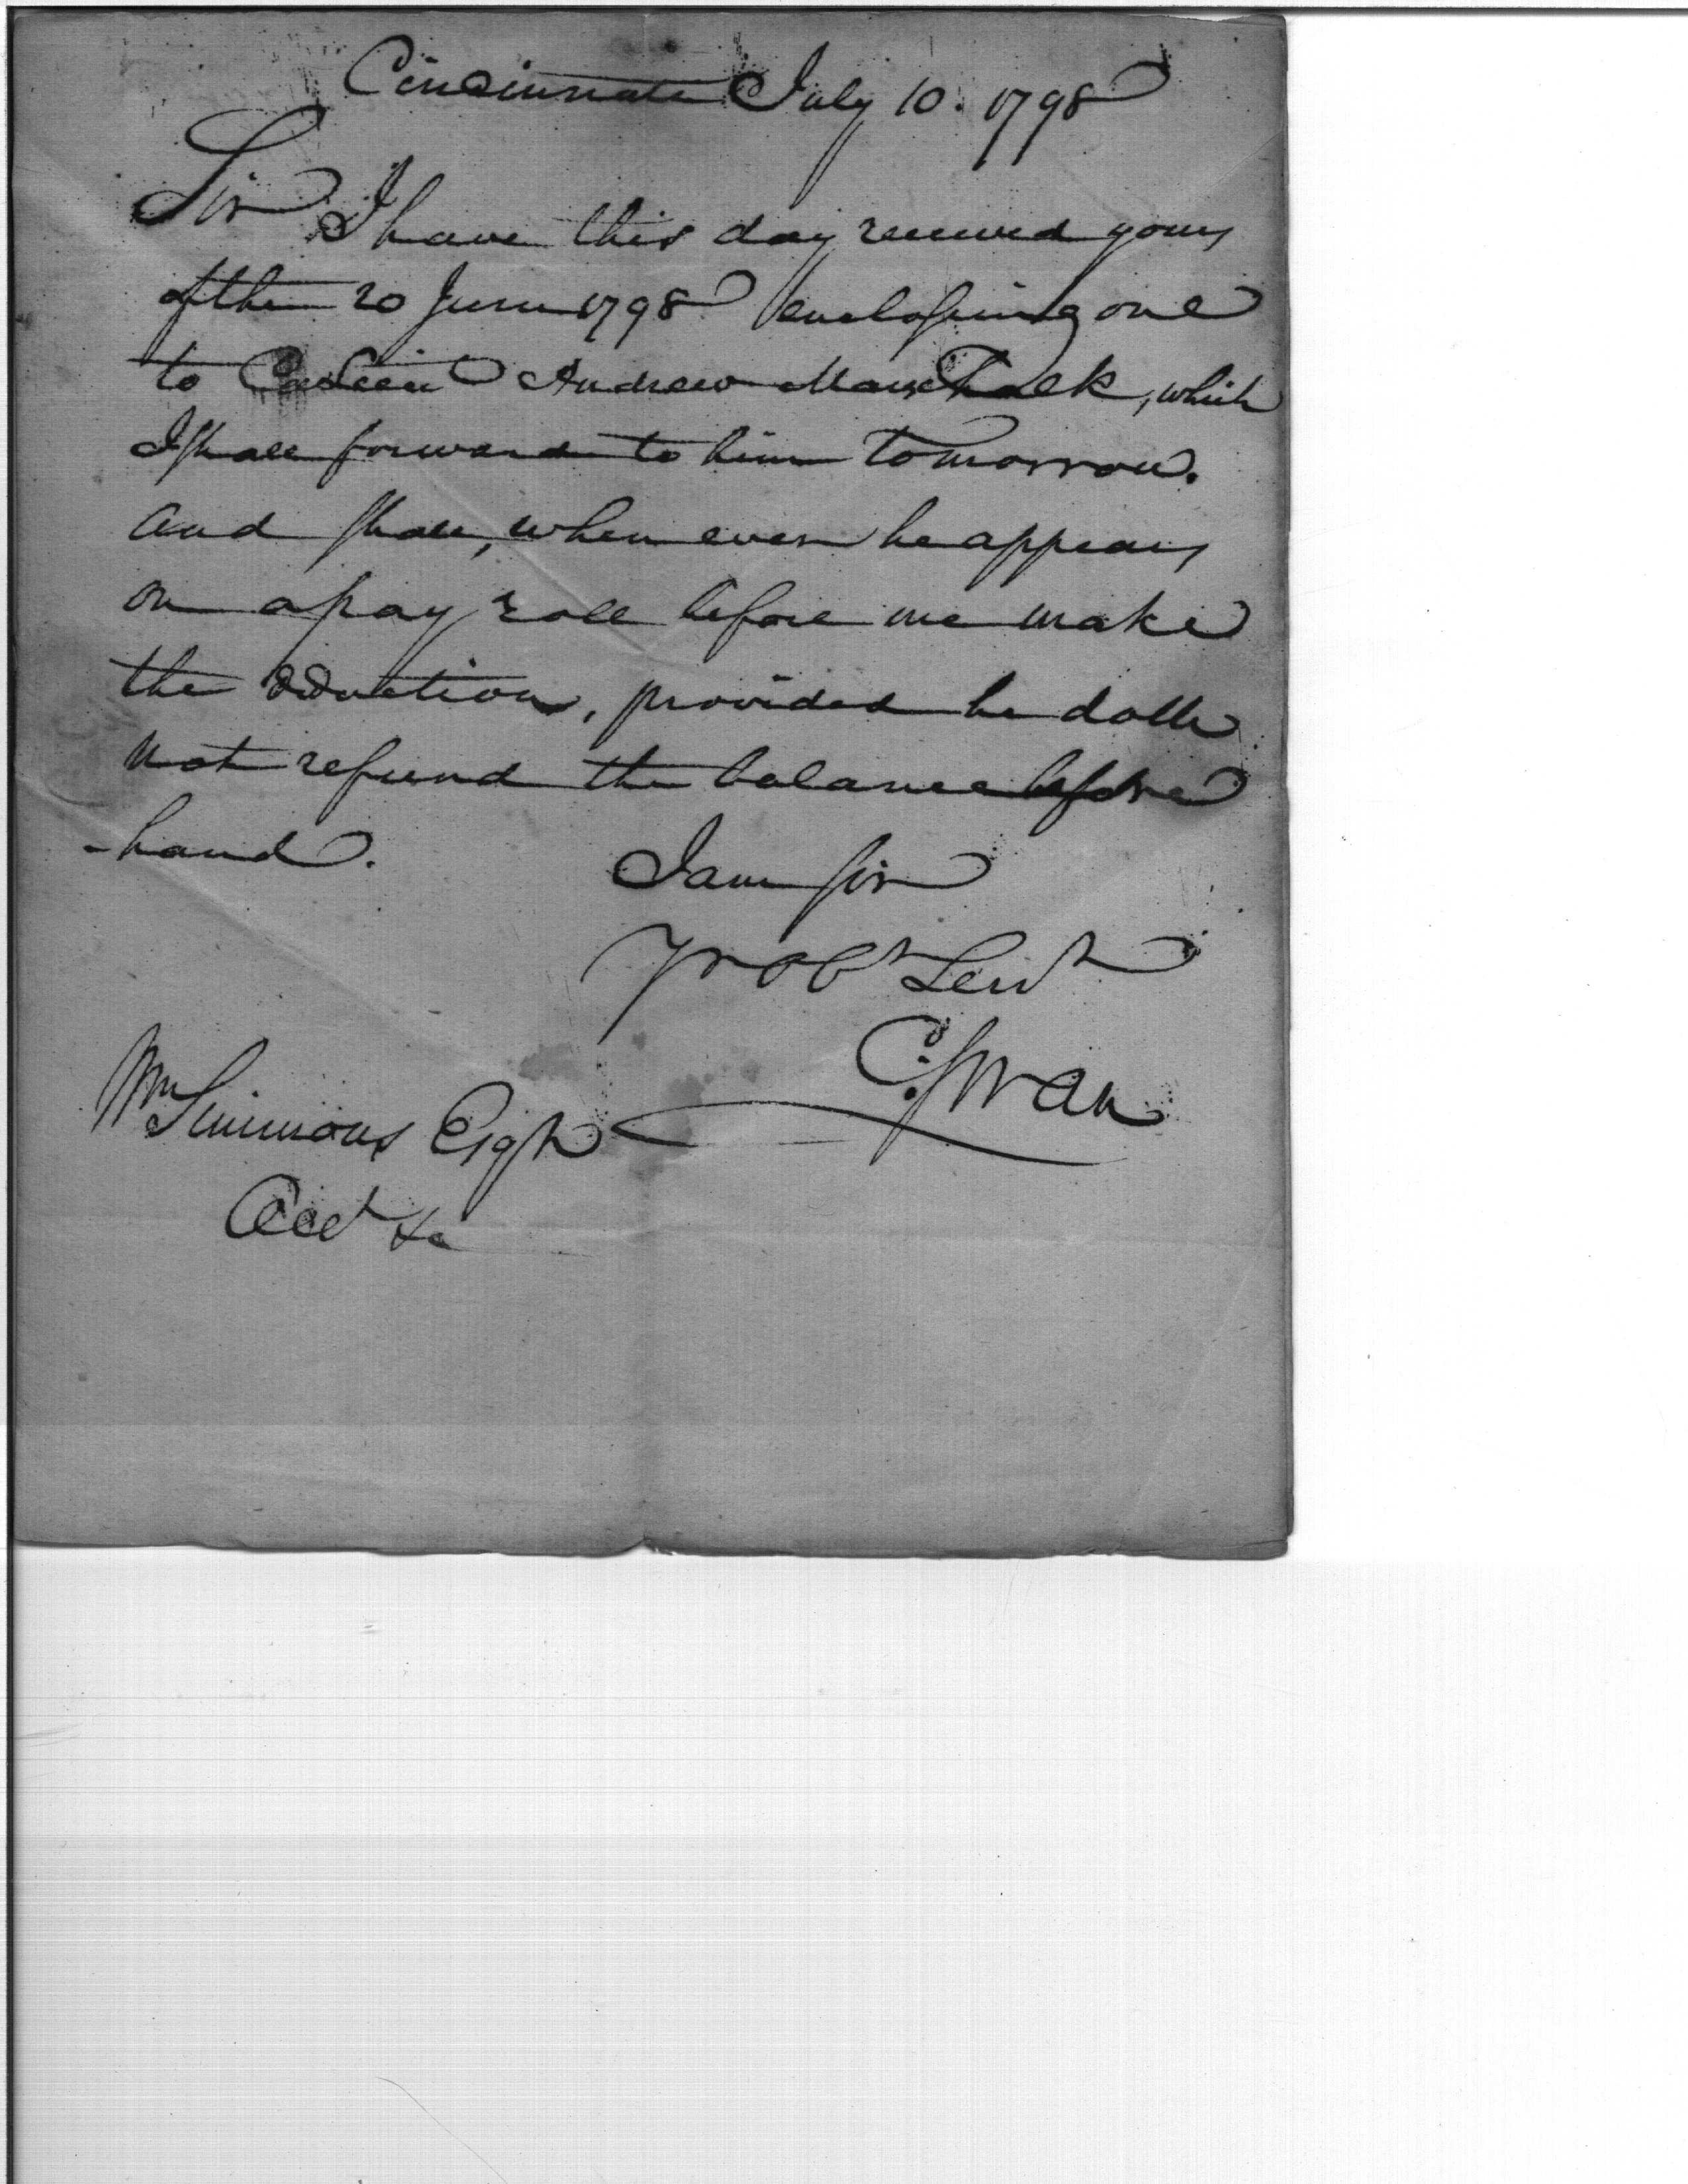 Cincinnati July 10. 1798
Sir I have this day received yours
of the 20 June 1798 enclosing one
to Andrew Marschalk, which
I shall forward to him tomorrow.
and shall, when ever he appears
on a pay role before me make
the deduction, provided he doth
not refund the balance before
-hand. I am sir
Yr obt Servt
C. Swan
Wm Simmons Esqr
Acct &c